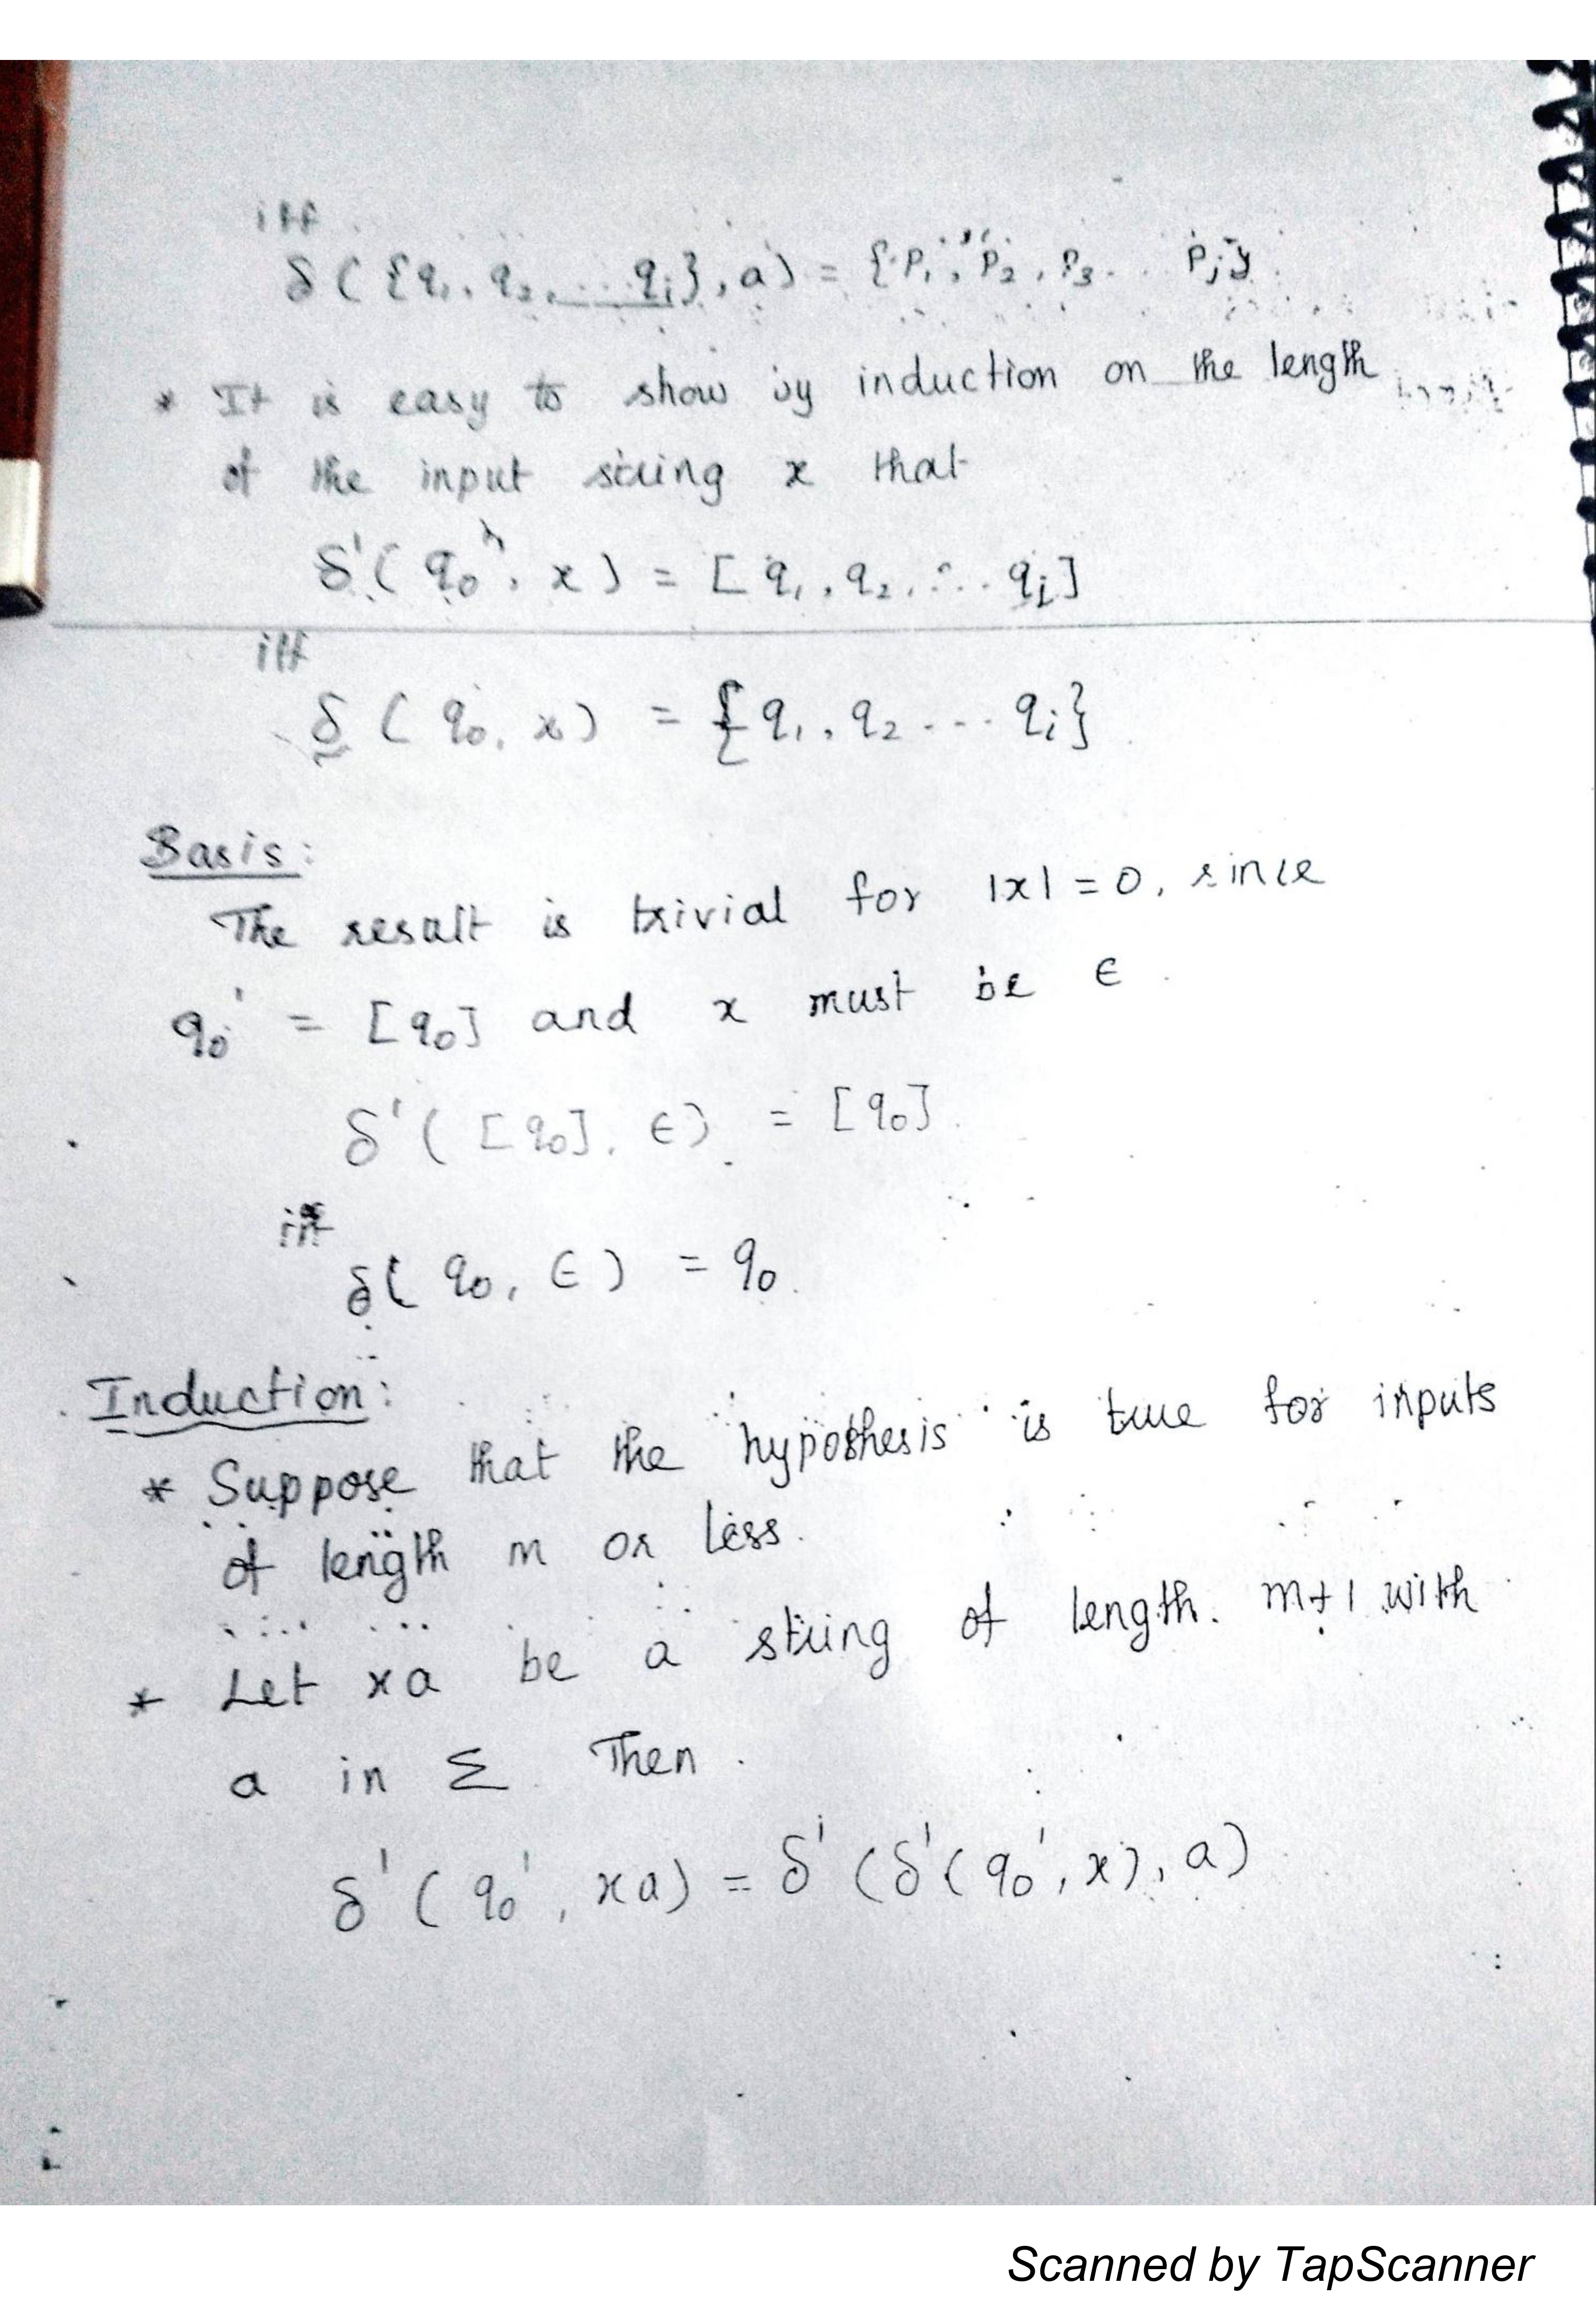 iff
δ ( {q₁, q₂, ... qᵢ}, a ) = { p₁, p₂, p₃ .. pⱼ }
* It is easy to show by induction on the length
of the input string x that
δ' ( q₀', x ) = [ q₁, q₂, ... qᵢ ]
iff
δ ( q₀, x ) = { q₁, q₂ ... qᵢ }
Basis:
The result is trivial for |x| = 0, since
q₀' = [q₀] and x must be ϵ
δ' ( [q₀], ϵ ) = [q₀].
iff
δ( q₀, ϵ ) = q₀.
Induction:
* Suppose that the hypothesis is true for inputs
of length m or less.
* Let xa be a string of length m+1 with
a in Σ. Then
δ' ( q₀', xa ) = δ' ( δ' ( q₀', x ), a )
Scanned by TapScanner